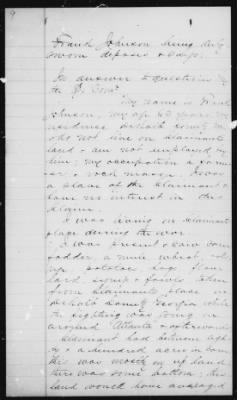 9
Frank Johnson being duly
sworn deposes & says:
In answer to questions by
the Sp. Com'r
My name is Frank
Johnson; my age 43 years; my
residence DeKalb County Ga
do not live on claimant
land & am not employed by
him; my occupation a farm-
er & rock mason. I was
a slave of the claimant &
have no interest in this
claim.
I was living on claimant
place during the war.
I was present & saw corn
fodder, a mule, wheat,
potatoes, hogs, flour
lard, syrup & fowls taken
from claimants place in
DeKalb County Georgia while
the fighting was going on
around Atlanta & afterwards
Claimant had between eighty
& a hundred acres in corn
this was mostly on up land
there was some bottom; this
land would have averaged